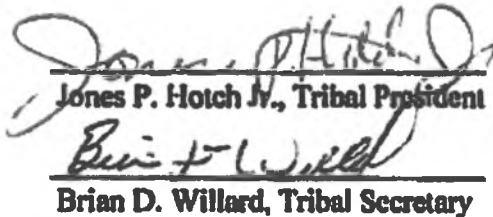 Jones P. Hotch Jr.
Jones P. Hotch Jr., Tribal President
Brian D. Willard, Tribal Secretary